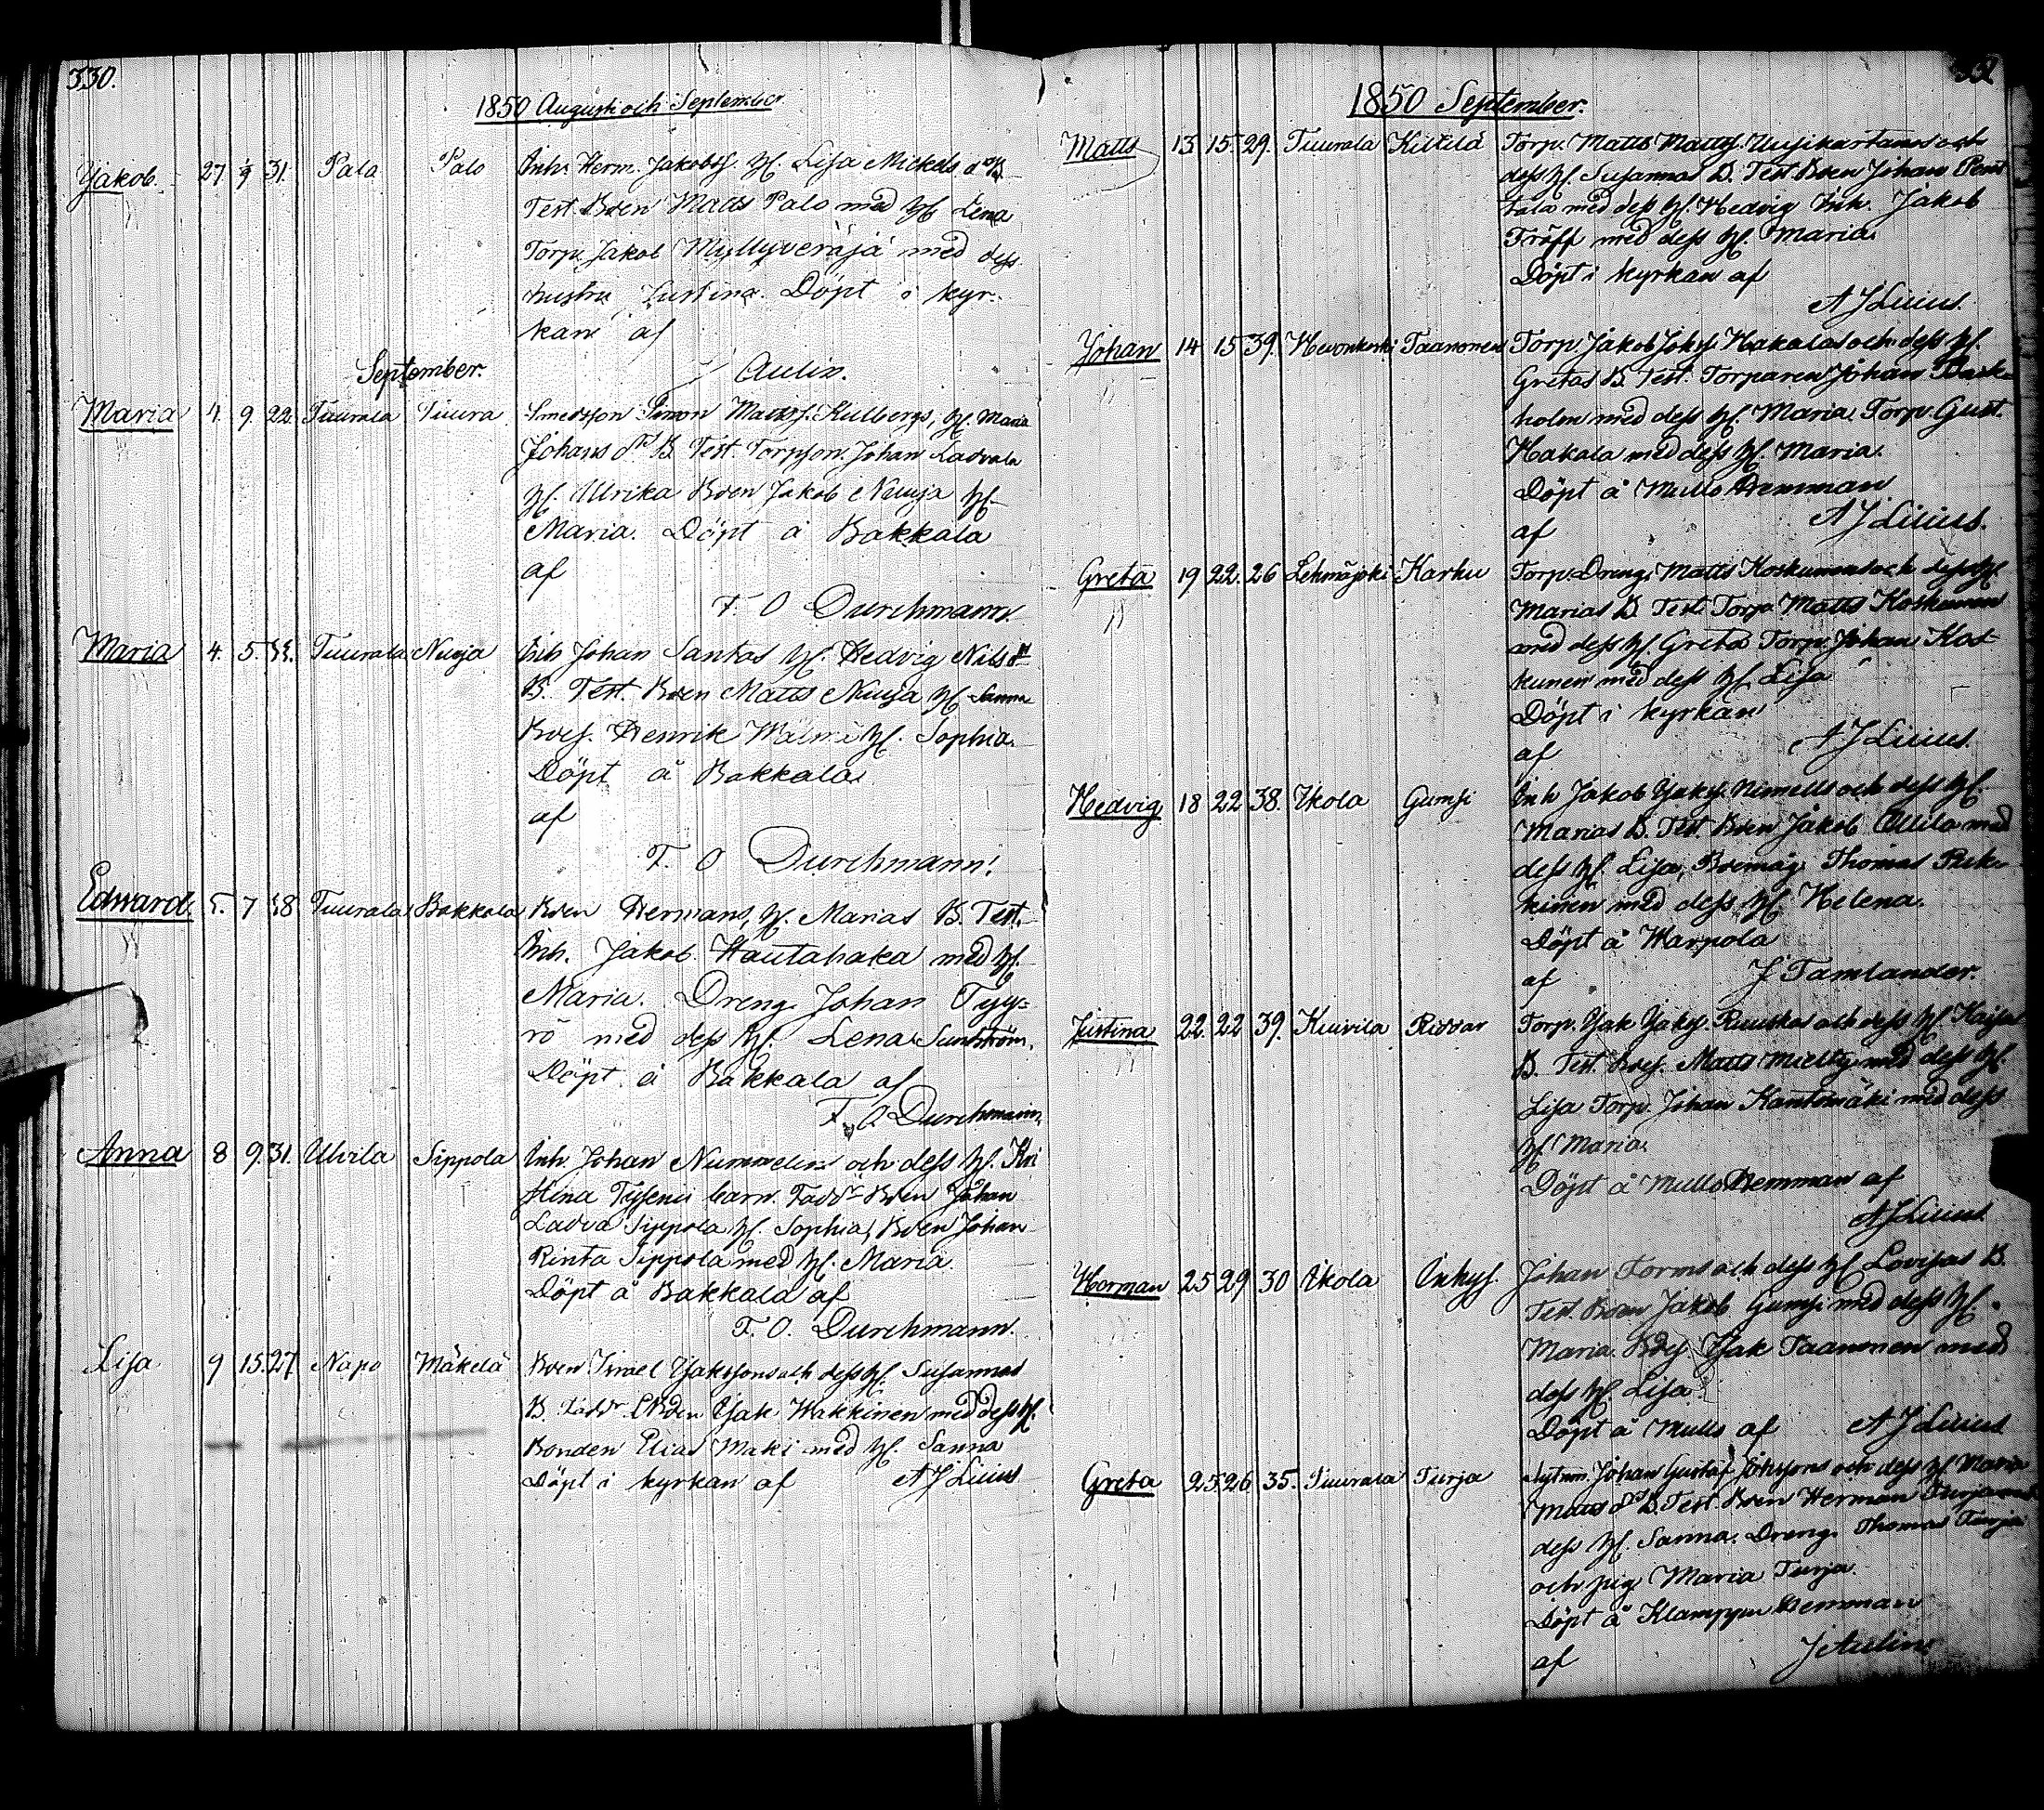 330.
1850 Augusti och September.
Jakob. 27 1/9 31. Palo Palo Inh. Herm. Jakobss. H. Lisa Mickels dr B.
Test. Bden Matts Palo med H. Lena
Torp. Jakob Myllyveräjä med dess
hustru Justina. Döpt i kyr-
kan af
J Aulin.
September.
Maria 4. 9. 22. Tuurala Tuura Smedsson Simon Kulbergs, H. Maria
Johans dr B. Test. Torpson. Johan Ladvala
H. Ulrika Bden Jakob Nuuja H.
Maria. Döpt å Bakkala
af
F. O Durchmann.
Maria 4. 5. Tuurala Nuuja Inh Johan Santas H. Hedvig Nils dr
B. Test. Bden Matts Nuuja H. Sanna
Bdes. Henrik H. Sophia.
Döpt å Bakkala.
af
F. O Durchmann.
Edward. 5. 7 Tuurala Bakkala Bden Hermans, H. Marias B. Test.
Inh. Jakob Hautahaka med H.
Maria. Dreng. Johan Tyy-
rö med dess H. Lena Sundström.
Döpt å Bakkala af
F. O Durchmann.
Anna 8 9. 31. Ulvila Sippola Inh. Johan Nummelin och dess H. Kri
stina barn. Fadd. Bden Johan
Ladva Sippola H. Sophia, Bden Johan
Rinta Sippola med H. Maria.
Döpt å Bakkala af
F. O. Durchmann.
Lisa 9 15. 27. Napo Mäkelä Bden Israel Jakssons och dess H. Susannas
B. Fadd. Bden Jak Hakkinen med dess H.
Bonden Elias Maki med H. Sanna
Döpt i kyrkan af A J Lilius
1850 September.
Matts 13 15. 29. Tuurala Kilkilä Torp. Matts Matts. Uusikartanos och
dess H. Susannas B. Test. Bden Johan Pent
tala med dess H. Hedvig Inh. Jakob
Träff med dess H. Maria.
Döpt i kyrkan af
A J Lilius.
Johan 14 15 39. Hevonkoski Taanonen Torp. Jakob Jaks. Hakalas och dess H.
Gretas B. Test. Torparen Johan
holm med dess H. Maria. Torp. Gust.
Hakala med dess H. Maria.
Döpt å Mullo Hemman
af A J Lilius.
Greta 19 22. 26 Lehmäjoki Karhu Torp. Dreng. Matts Koskunen och dess H.
Marias B. Test. Torp. Matts Koskunen
med dess H. Greta Torp. Johan Kos-
kunen med dess H. Lisa
Döpt i kyrkan
af A J Lilius.
Hedvig 18 22 38. Ikola Gumsi Inh Jakob Jaks. och dess H.
Marias B. Test. Bden Jakob Ollila med
dess H. Lisa, Bdemåg. Thomas
kinen med dess H. Helena.
Döpt å Warpola
af J Tamlander.
Justina 22. 22 39. Kuivila Riddar Torp. Jak Jaks. Ruuskas och dess H. Kaisas
B. Test. Bdes. Matts med dess H.
Lisa Torp. Johan Kantomäki med dess
H. Maria.
Döpt å Mullo Hemman af
A J Lilius
Herman 25 29 30 Ikola Inhys. Johan Forms och dess H. Lovisas B.
Test. Bden Jakob Gumsi med dess H.
Maria. Bdes Jak Taanonen med
dess H. Lisa.
Döpt å Mullo af A J Lilius
Greta 25. 26 35. Tuurala Turja Nytom. Johan Gustaf Johssons och dess H. Maria
Matts dr B. Test. Bden Herman Turja med
dess H. Sanna. Dreng. Thomas Turja
och pig. Maria Turja.
Döpt å Klamppu Hemman
af J Aulin